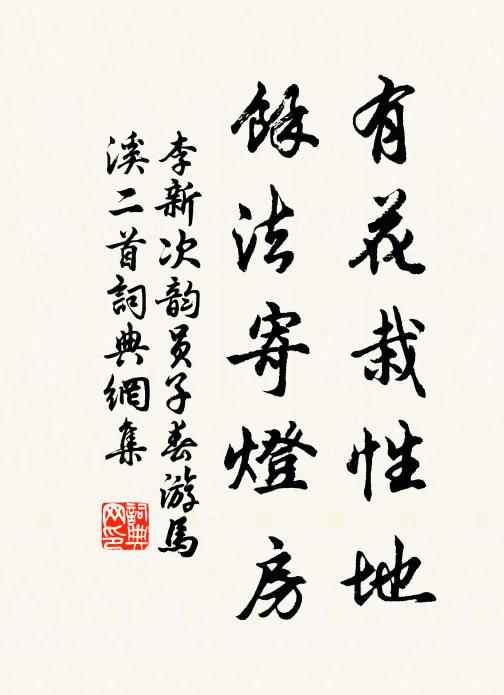 有花栽性地
餘法寄燈房
李新次韵員子春游馬
溪二首詞典網集
詞典
网印